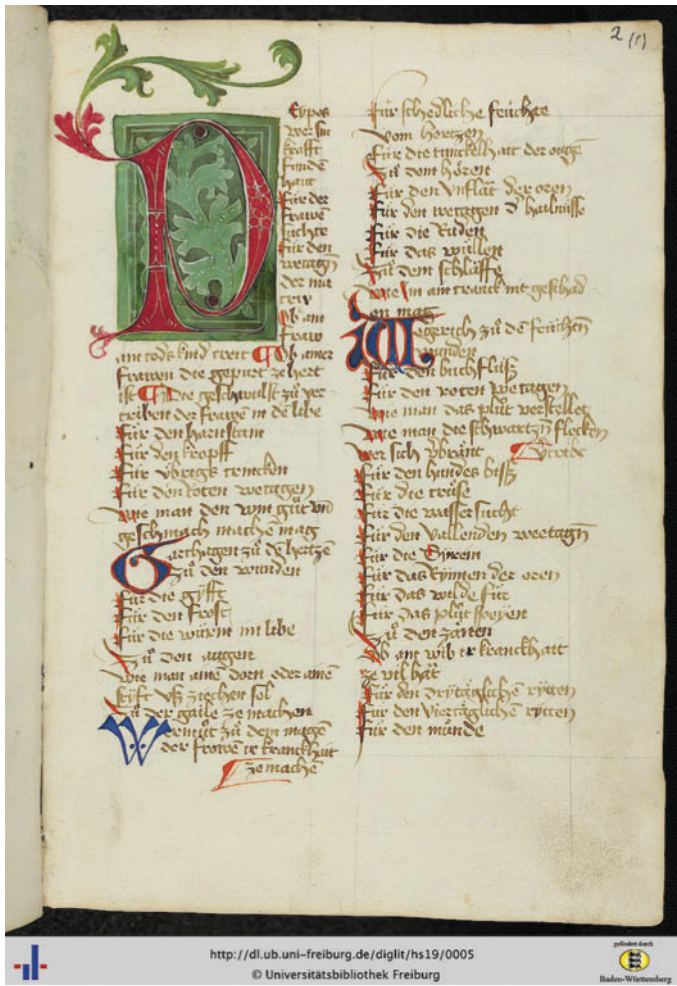 2 (1)
Eypos
wer sin
krafft
hant
Für der
frawē
Für den
wetagn
der ma
triv
Ob ain
fraw
ain tods kind treit Ob ainer
frawen die gepurt ze hert
ist Die geschwulst zů ver
triben der frawē in dē libe
Für den harnstain
Für den kropff
Für vbrigs trincken
Für den koten wetagen
Wie man den win gůt vnd
geschmach machē mag
Garthagen zů dē hertzē
Zů den wunden
Für die gyfft
Für den Frost
Für die würm im libe
Zů den augen
Wie man ainē dorn oder ainē
kyft vß ziechen sol
Zů der gaile ze machen
Wermůt zů dem magē
der frowē ir kranckhait
ze machē
Für schedliche feüchte
vom hertzen
Für die tunckelhait der ougē
Zů dem hören
Für den vnflat der oren
Für den wetagen d hailnüsse
Für die Ruden
Für das wüllen
Zů dem schlaffe
Wie im ain tranck nit geschad
en mag
Wegerich zů dē feüchen
wunden
Für den buchflůß
Für den roten wetagen
Wie man das plůt verstellet
Wie man die schwartzn flecken
Wer sich vbränt vtribe
Für den hundes biß
Für die trüse
Für die wassersucht
Für den vallenden weetagn
Für die
Für das Rynnen der oren
Für das wilde für
Für das plůt speyen
Zů den zänen
Ob ain wib ir kranckhait
ze vil hät
Für den drytäglichē rytten
Für den viertäglichē rytten
Für den munde
http://dl.ub.uni-freiburg.de/diglit/hs19/0005
© Universitätsbibliothek Freiburg
gefördert durch
Baden-Württemberg